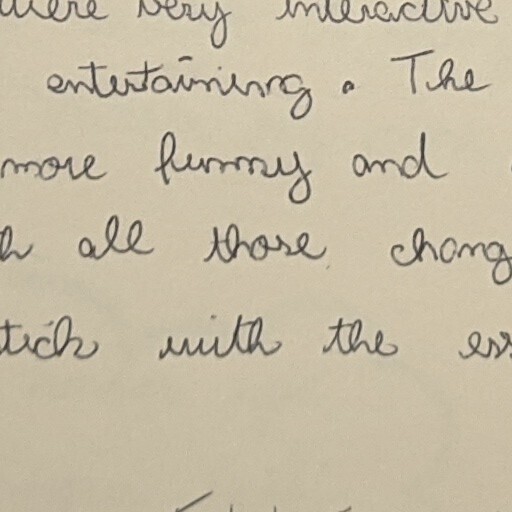 were very interactive
entertaining. The
more funny and
all those chang
tick with the ess